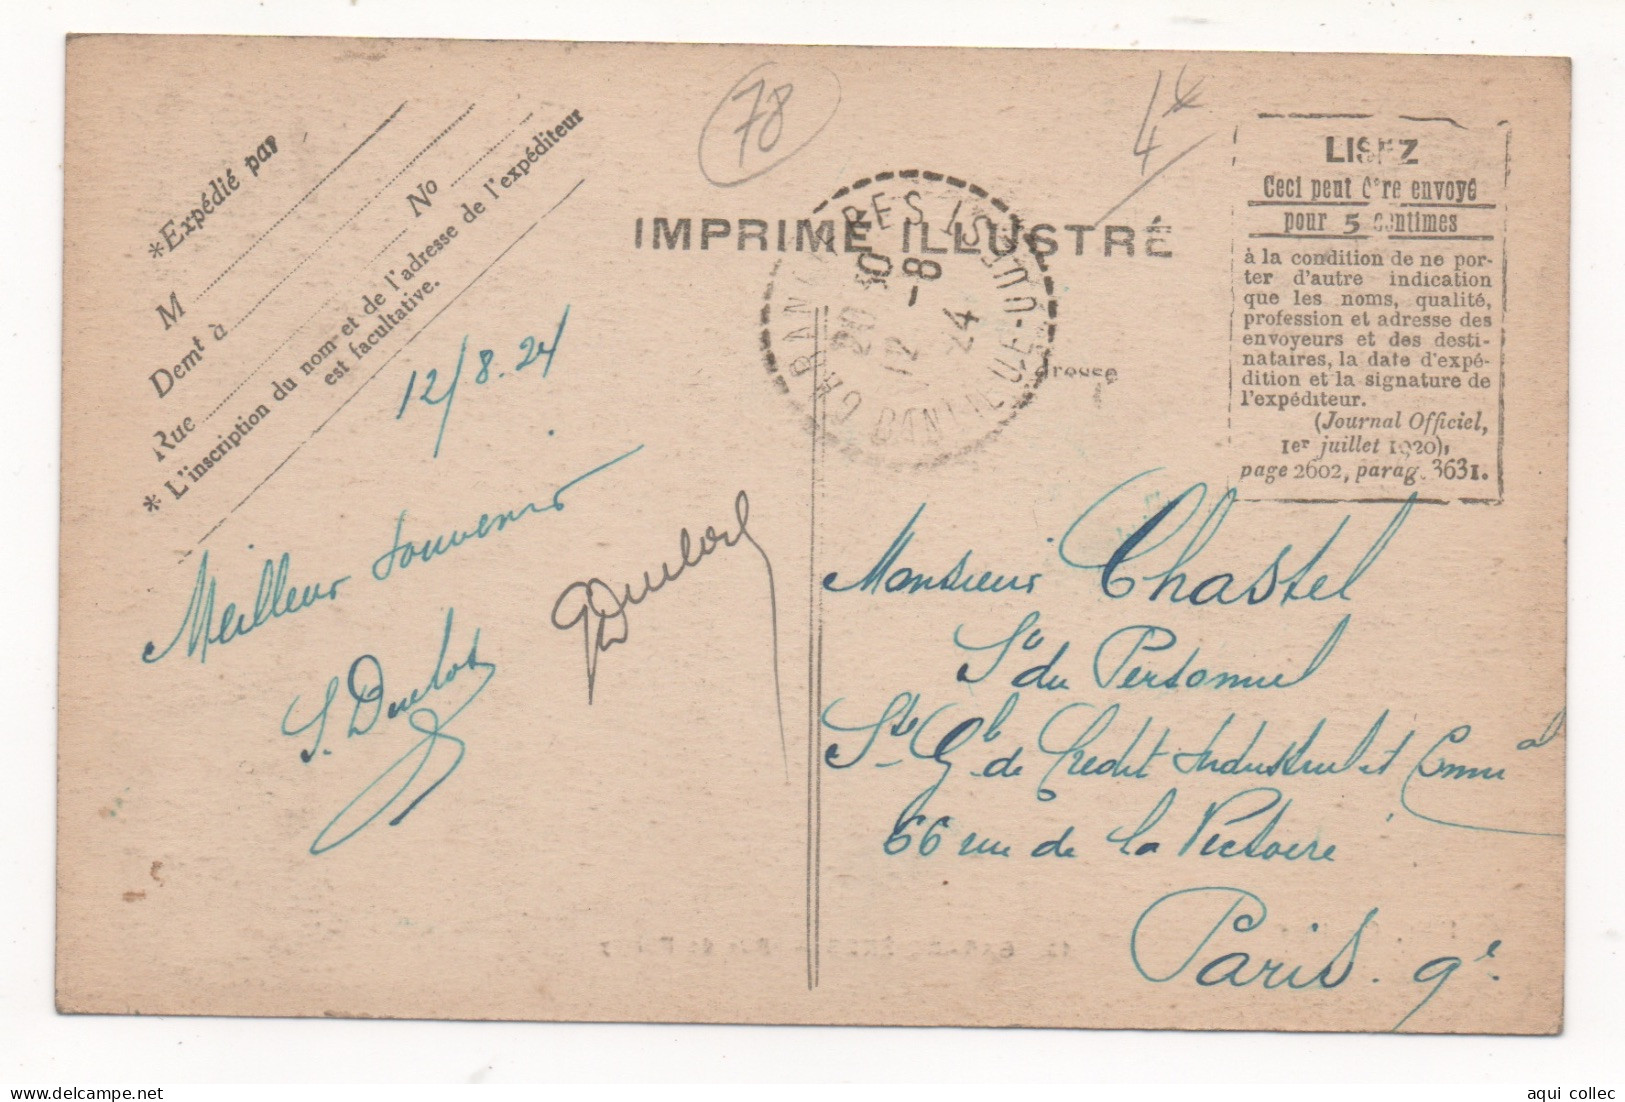 78
4
*Expédié par
M
No
Demt à
Rue
* L'inscription du nom et de l'adresse de l'expéditeur
est facultative.
IMPRIMÉ ILLUSTRÉ
20 30
12 -8
24
dresse
LISEZ
Ceci peut être envoyé
pour 5 centimes
à la condition de ne por-
ter d'autre indication
que les noms, qualité,
profession et adresse des
envoyeurs et des desti-
nataires, la date d'expé-
dition et la signature de
l'expéditeur.
(Journal Officiel,
1er juillet 1920),
page 2602, parag. 3631.
12/8.24
Meilleur souvenir
Monsieur Chastel
Sce du Personnel
Sté Gle de Crédit Industriel et Commal
66 rue de la Victoire
Paris. 9e.
aqui collec